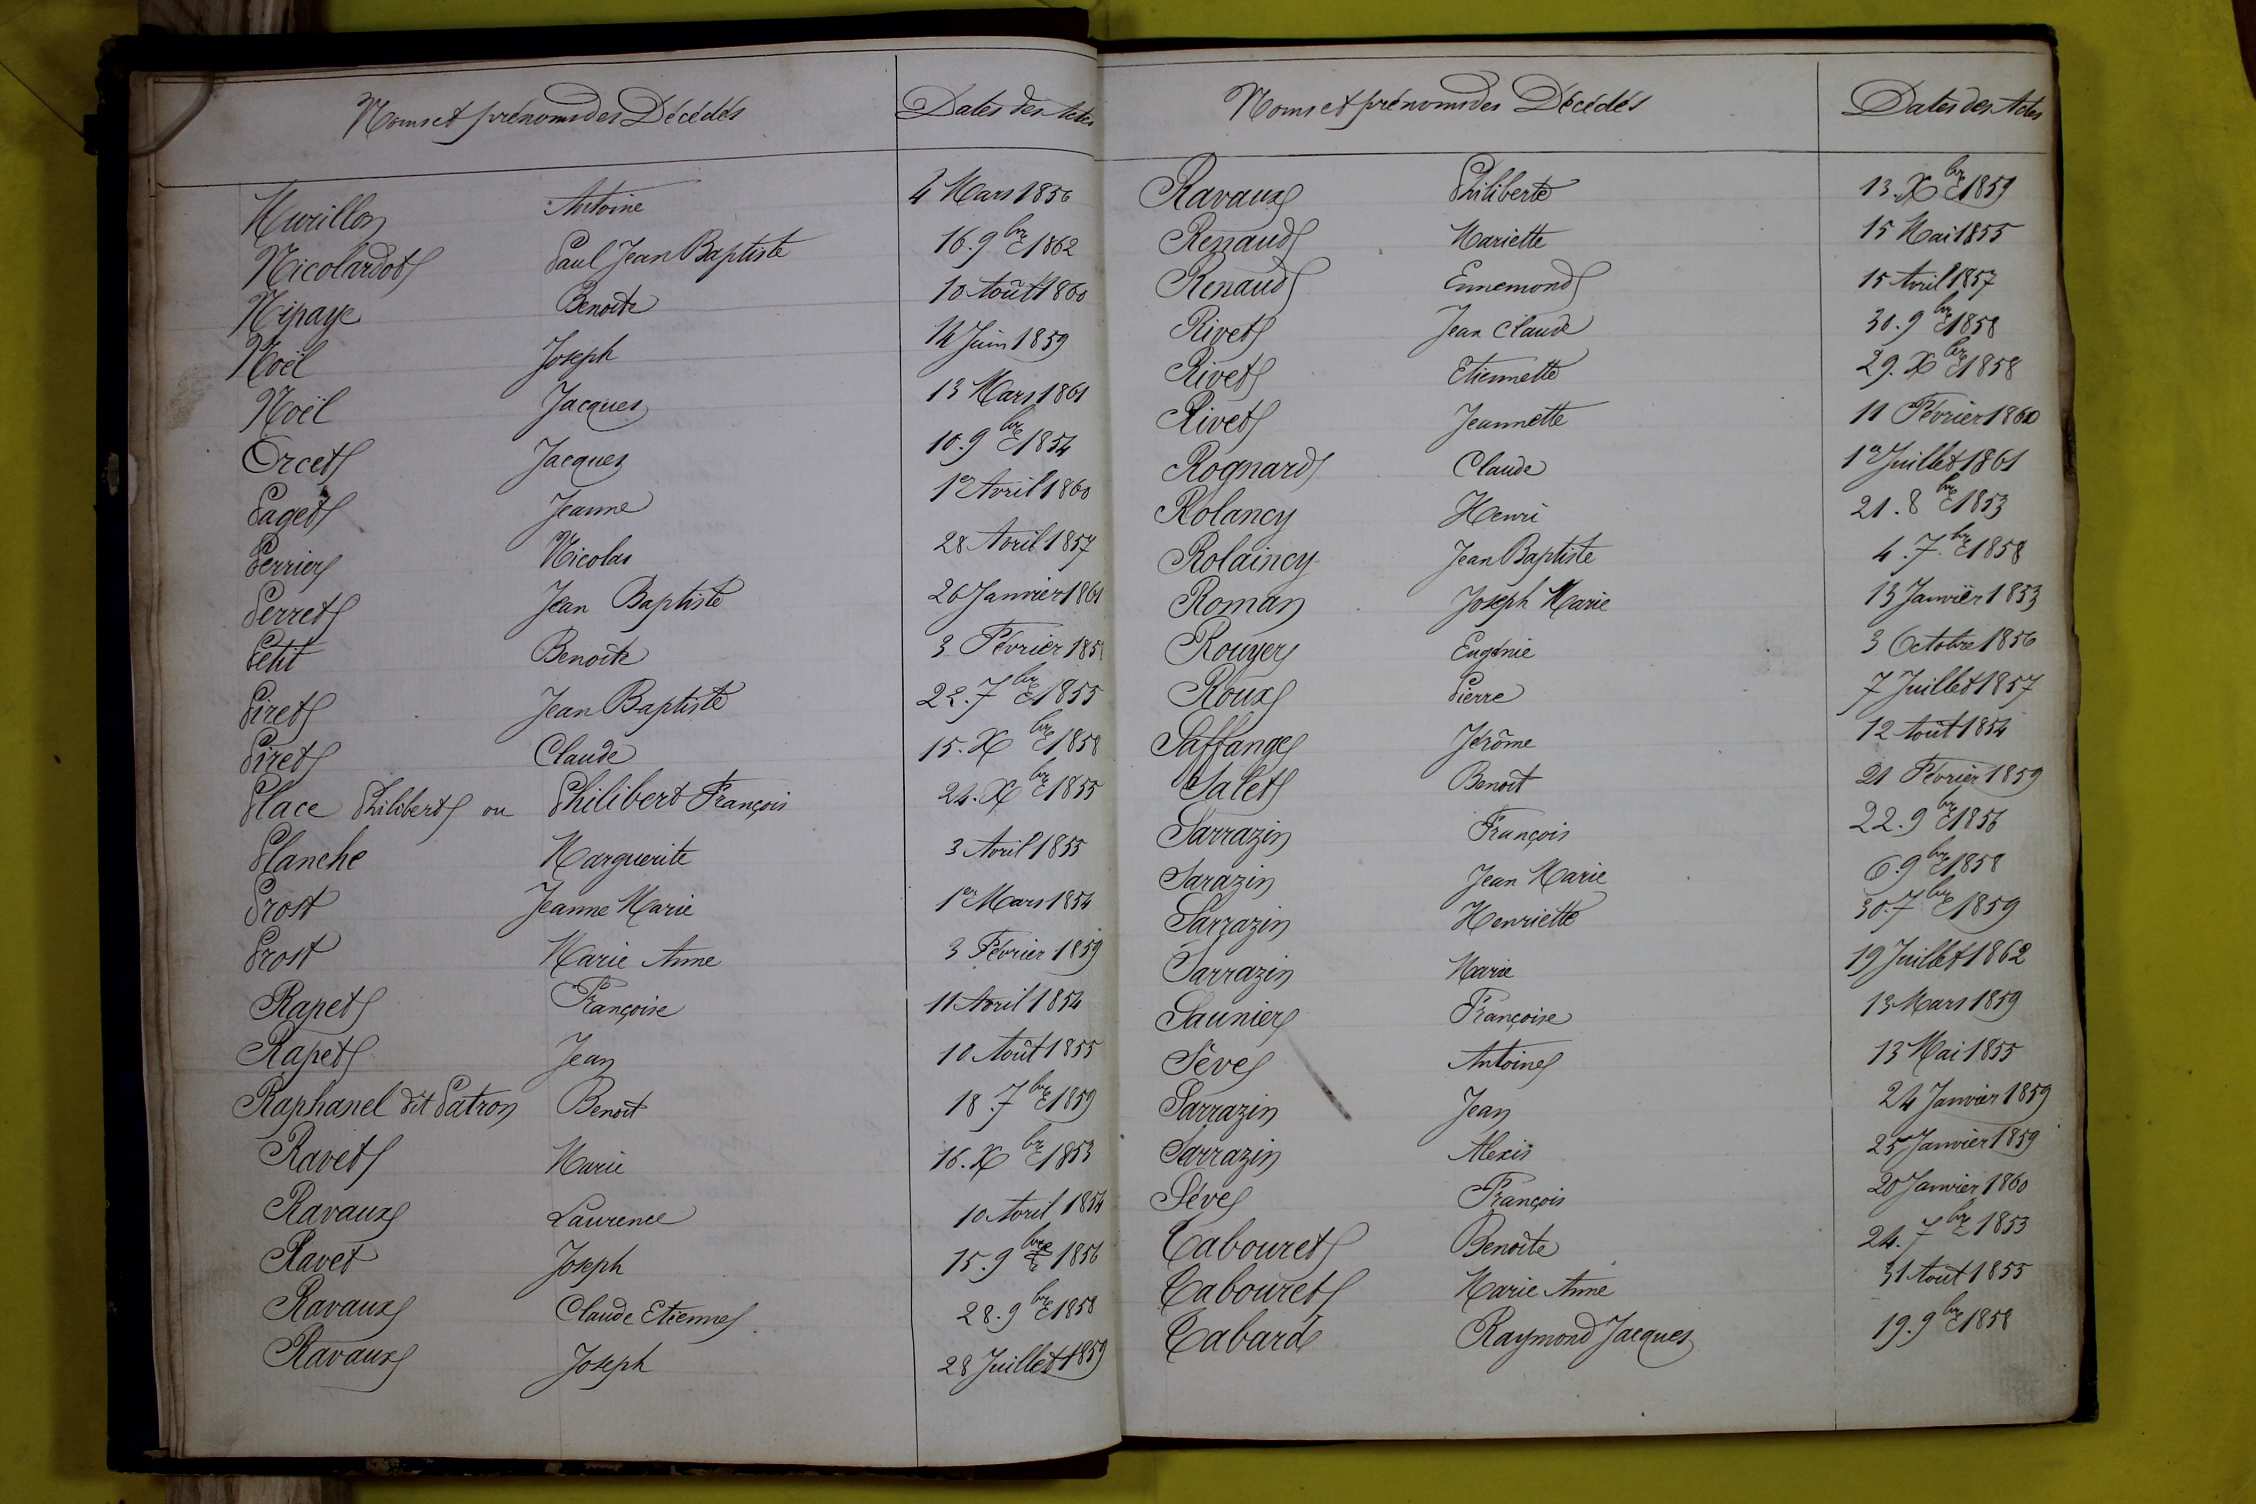 Noms et prénoms des Décédés Dates des Actes
Murillon Antoine 4 Mars 1856
Nicolardot Paul Jean Baptiste 16. 9bre 1862
Nipaye Benoite 10 Août 1860
Noël Joseph 14 Juin 1859
Noël Jacques 13 Mars 1861
Orcet Jacques 10. 9bre 1854
Paget Jeanne 1er Avril 1860
Perrier Nicolas 28 Avril 1857
Perret Jean Baptiste 26 Janvier 1861
Petit Benoite 3 Février
Piret Jean Baptiste 22. 7bre 1855
Piret Claude 15. Xbre 1858
Place Philibert ou Philibert François 24. Xbre 1855
Planche Marguerite 3 Avril 1855
Prost Jeanne Marie 1er Mars 1854
Prost Marie Anne 3 Février 1859
Rapet Françoise 11 Avril 1854
Rapet Jean 10 Août 1855
Raphanel dit Patron Benoit 18. 7bre 1859
Ravet Marie 16. Xbre 1853
Ravaux Laurence 10 Avril 1854
Ravet Joseph 15. 9bre 1856
Ravaux Claude Etienne 28. 9bre 1858
Ravaux Joseph 28 Juillet 1859
Noms et prénoms des Décédés Dates des Actes
Ravaux Philiberte 13. Xbre 1859
Renaud Mariette 15 Mai 1855
Renaud Ennemond 15 Avril 1857
Rivet Jean Claude 30. 9bre 1858
Rivet Etiennette 29. Xbre 1858
Rivet Jeannette 11 Février 1860
Rognard Claude 1er Juillet 1861
Rolancy Henri 21. 8bre 1853
Rolaincy Jean Baptiste 4. 7bre 1858
Roman Joseph Marie 13 Janvier 1853
Rouyer Eugénie 3 Octobre 1856
Roux Pierre 7 Juillet 1857
Saffange Jérôme 12 Août 1854
Salet Benoit 21 Février 1859
Sarrazin François 22. 9bre 1856
Sarazin Jean Marie 6. 9bre 1858
Sarrazin Henriette 30. 7bre 1859
Sarrazin Marie 19 Juillet 1862
Saunier Françoise 13 Mars 1859
Sève Antoine 13 Mai 1855
Sarrazin Jean 24 Janvier 1859
Sarrazin Alexis 25 Janvier 1859
Séve François 20 Janvier 1860
Tabouret Benoite 24. 7bre 1853
Tabouret Marie Anne 31 Août 1855
Tabard Raymond Jacques 19. 9bre 1858